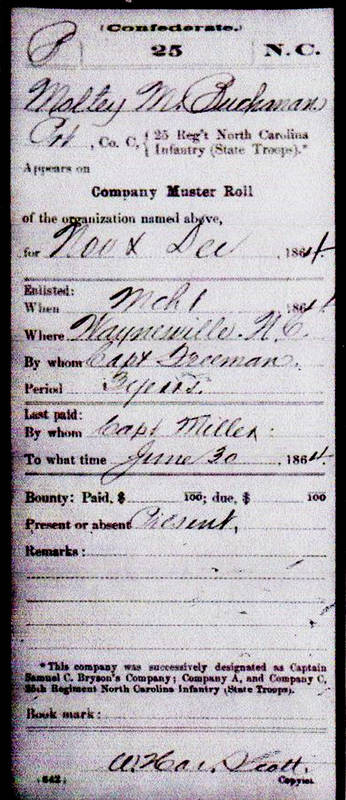 (Confederate.)
P 25 N.C.
Moltey M. Buchanan
Pvt, Co. C, { 25 Reg't North Carolina
Infantry (State Troops).*
Appears on
Company Muster Roll
of the organization named above,
for Nov & Dec, 1864.
Enlisted:
When Mch 1, 1864.
Where Waynesville N.C.
By whom Capt Freeman.
Period 3 years.
Last paid:
By whom Capt Miller.
To what time June 30, 1864.
Bounty: Paid, $ 100; due, $ 100
Present or absent Present,
Remarks:
*This company was successively designated as Captain
Samuel C. Bryson's Company; Company A, and Company C,
25th Regiment North Carolina Infantry (State Troops).
Book mark:
Scott.
(642) Copyist.